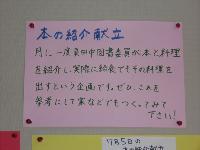 本の紹介献立
月に一度泉田中図書委員が本と料理
を紹介し、実際に給食でもその料理を
出すという企画です。ぜひ、これを
参考にして家などでもつくってみて
下さい!
7月5日の
本の紹介献立